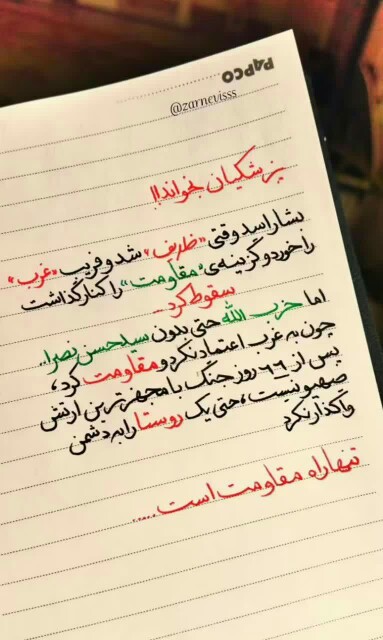 PAPCO
@zarnevisss
پزشکیان نخواند!!
بشار اسد وقتی «ظریف» شد و فریب «غرب»
را خورد و گزینه‌ی «مقاومت» را کنار گذاشت
سقوط کرد...
اما حزب الله حتی بدون سید حسن نصرا..
چون به غرب اعتماد نکرد و مقاومت کرد،
پس از ۶۶ روز جنگ با مجهزترین ارتش
صهیونیست، حتی یک روستا را به دشمن
واگذار نکرد
تنها راه مقاومت است.....